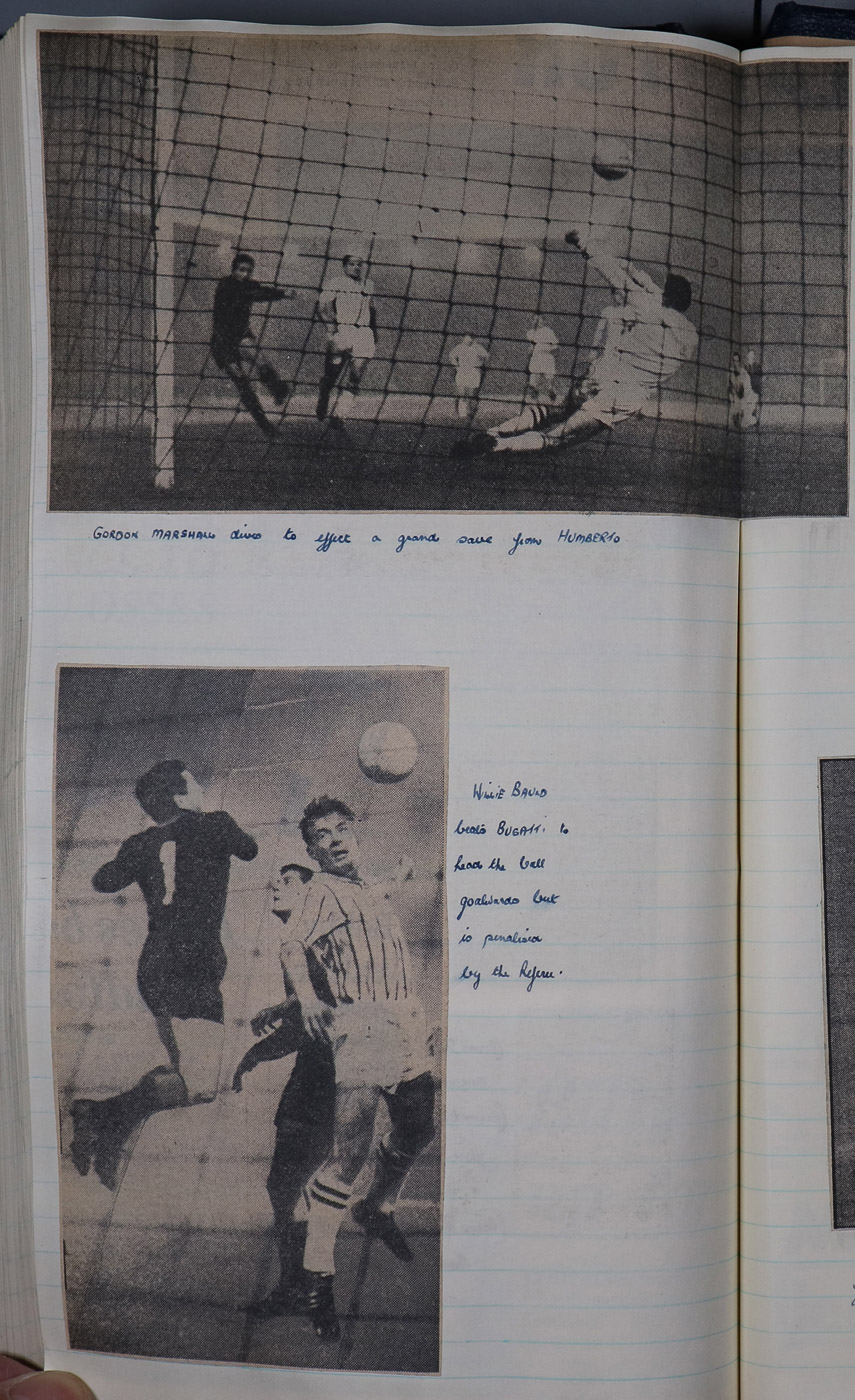 GORDON MARSHALL dives to effect a grand save from HUMBERTO
1
WILLIE BAULD
beats BUGATTI to
head the ball
goalwards but
is penalised
by the Referee.